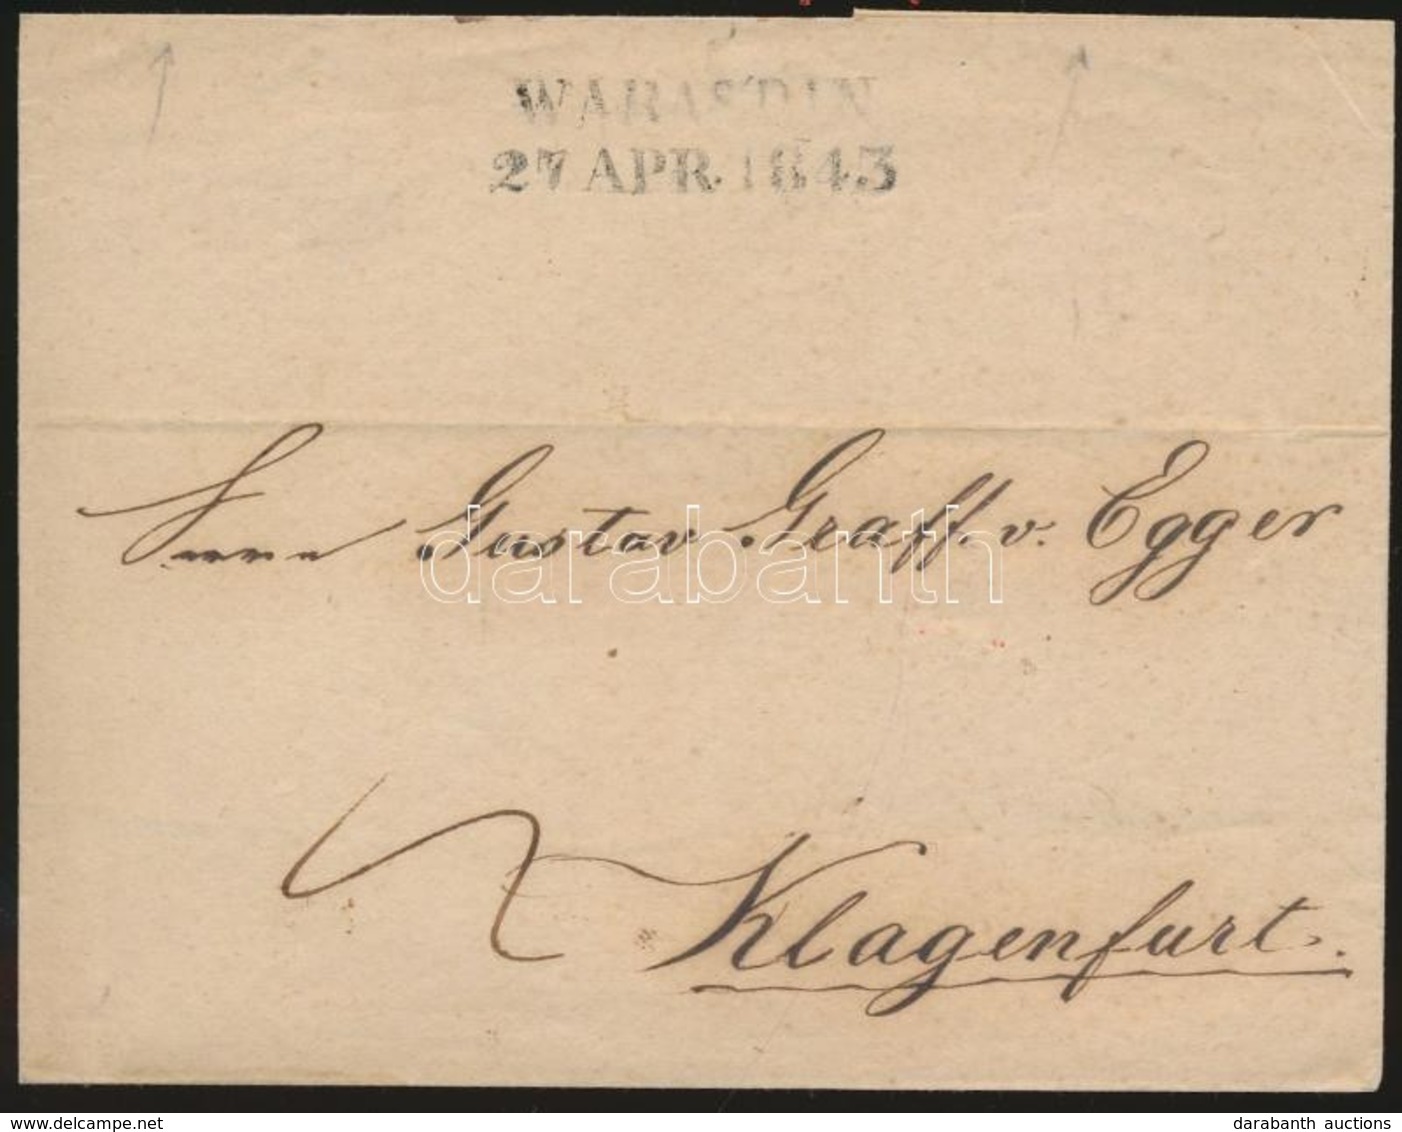 WARASDIN
27 APR. 1843
Herrn Gustav Graff. v. Egger
darabanth
Klagenfurt.
www.delcampe.net
darabanth auctions